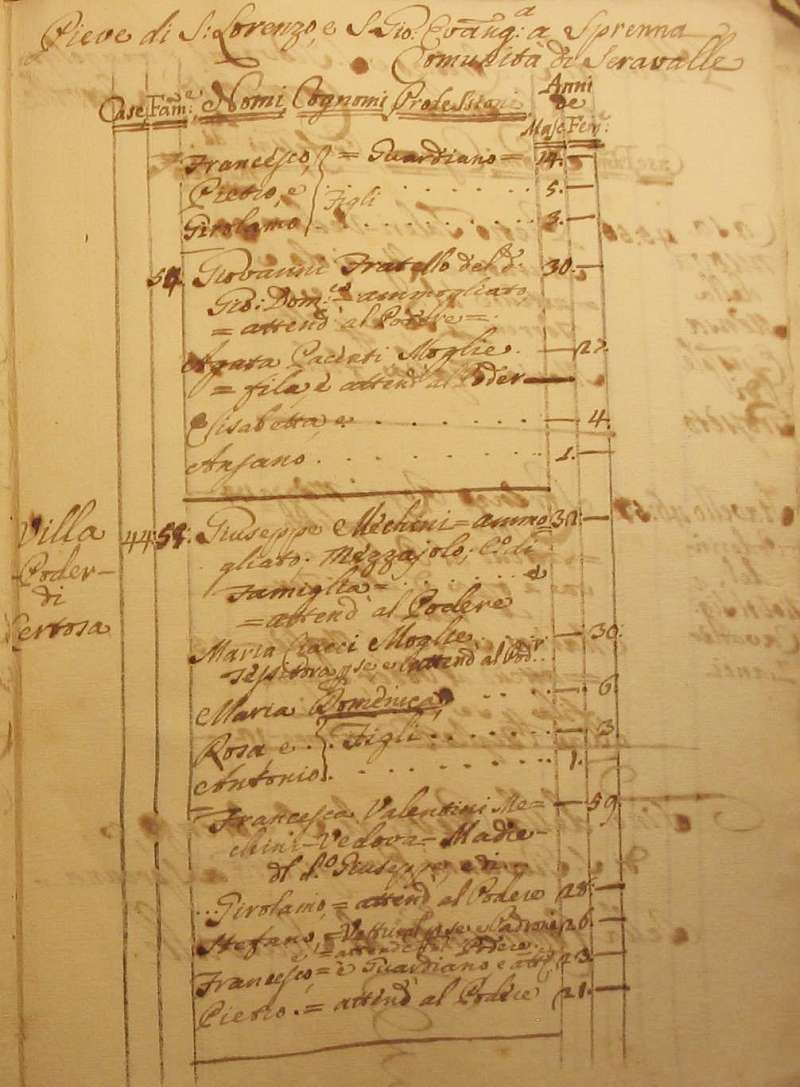 Pieve di S: Lorenzo, e S. Gio: Evang:a a Sprenna
Comunità di Seravalle
Case, Fam:e Nomi, Cognomi, Professioni Anni de
Mas: Fem:
Francesco, = Guardiano = 14. —
Pietro, e Figli 5. —
Girolamo 3. —
Giovanni Fratello del d. 30. —
Gio: Dom:co = ammogliato,
= attend' al Podere =
Agata Pacenti Moglie — 27.
= fila, e attend' al Poder —
Elisabetta, e — 4.
Ansano 1. —
Villa 44. Giuseppe Mechini = ammo 32. —
Poder- gliato. Mezzajolo, C.o di
di Famiglia =
Certosa = attend' al Podere
Maria Ciacci Moglie — 30.
attend' al Pod.
Maria Domenica, — 6.
Rosa e Figli — 3.
Antonio 1. —
Francesca Valentini Me= — 59.
chini = Vedova = Madre
del d.o Giuseppe, e di
Girolamo, = attend' al Podere 28. —
Stefano, = 26. —
Francesco, = è Guardiano e att. 23. —
Pietro. = attend' al Podere 21. —